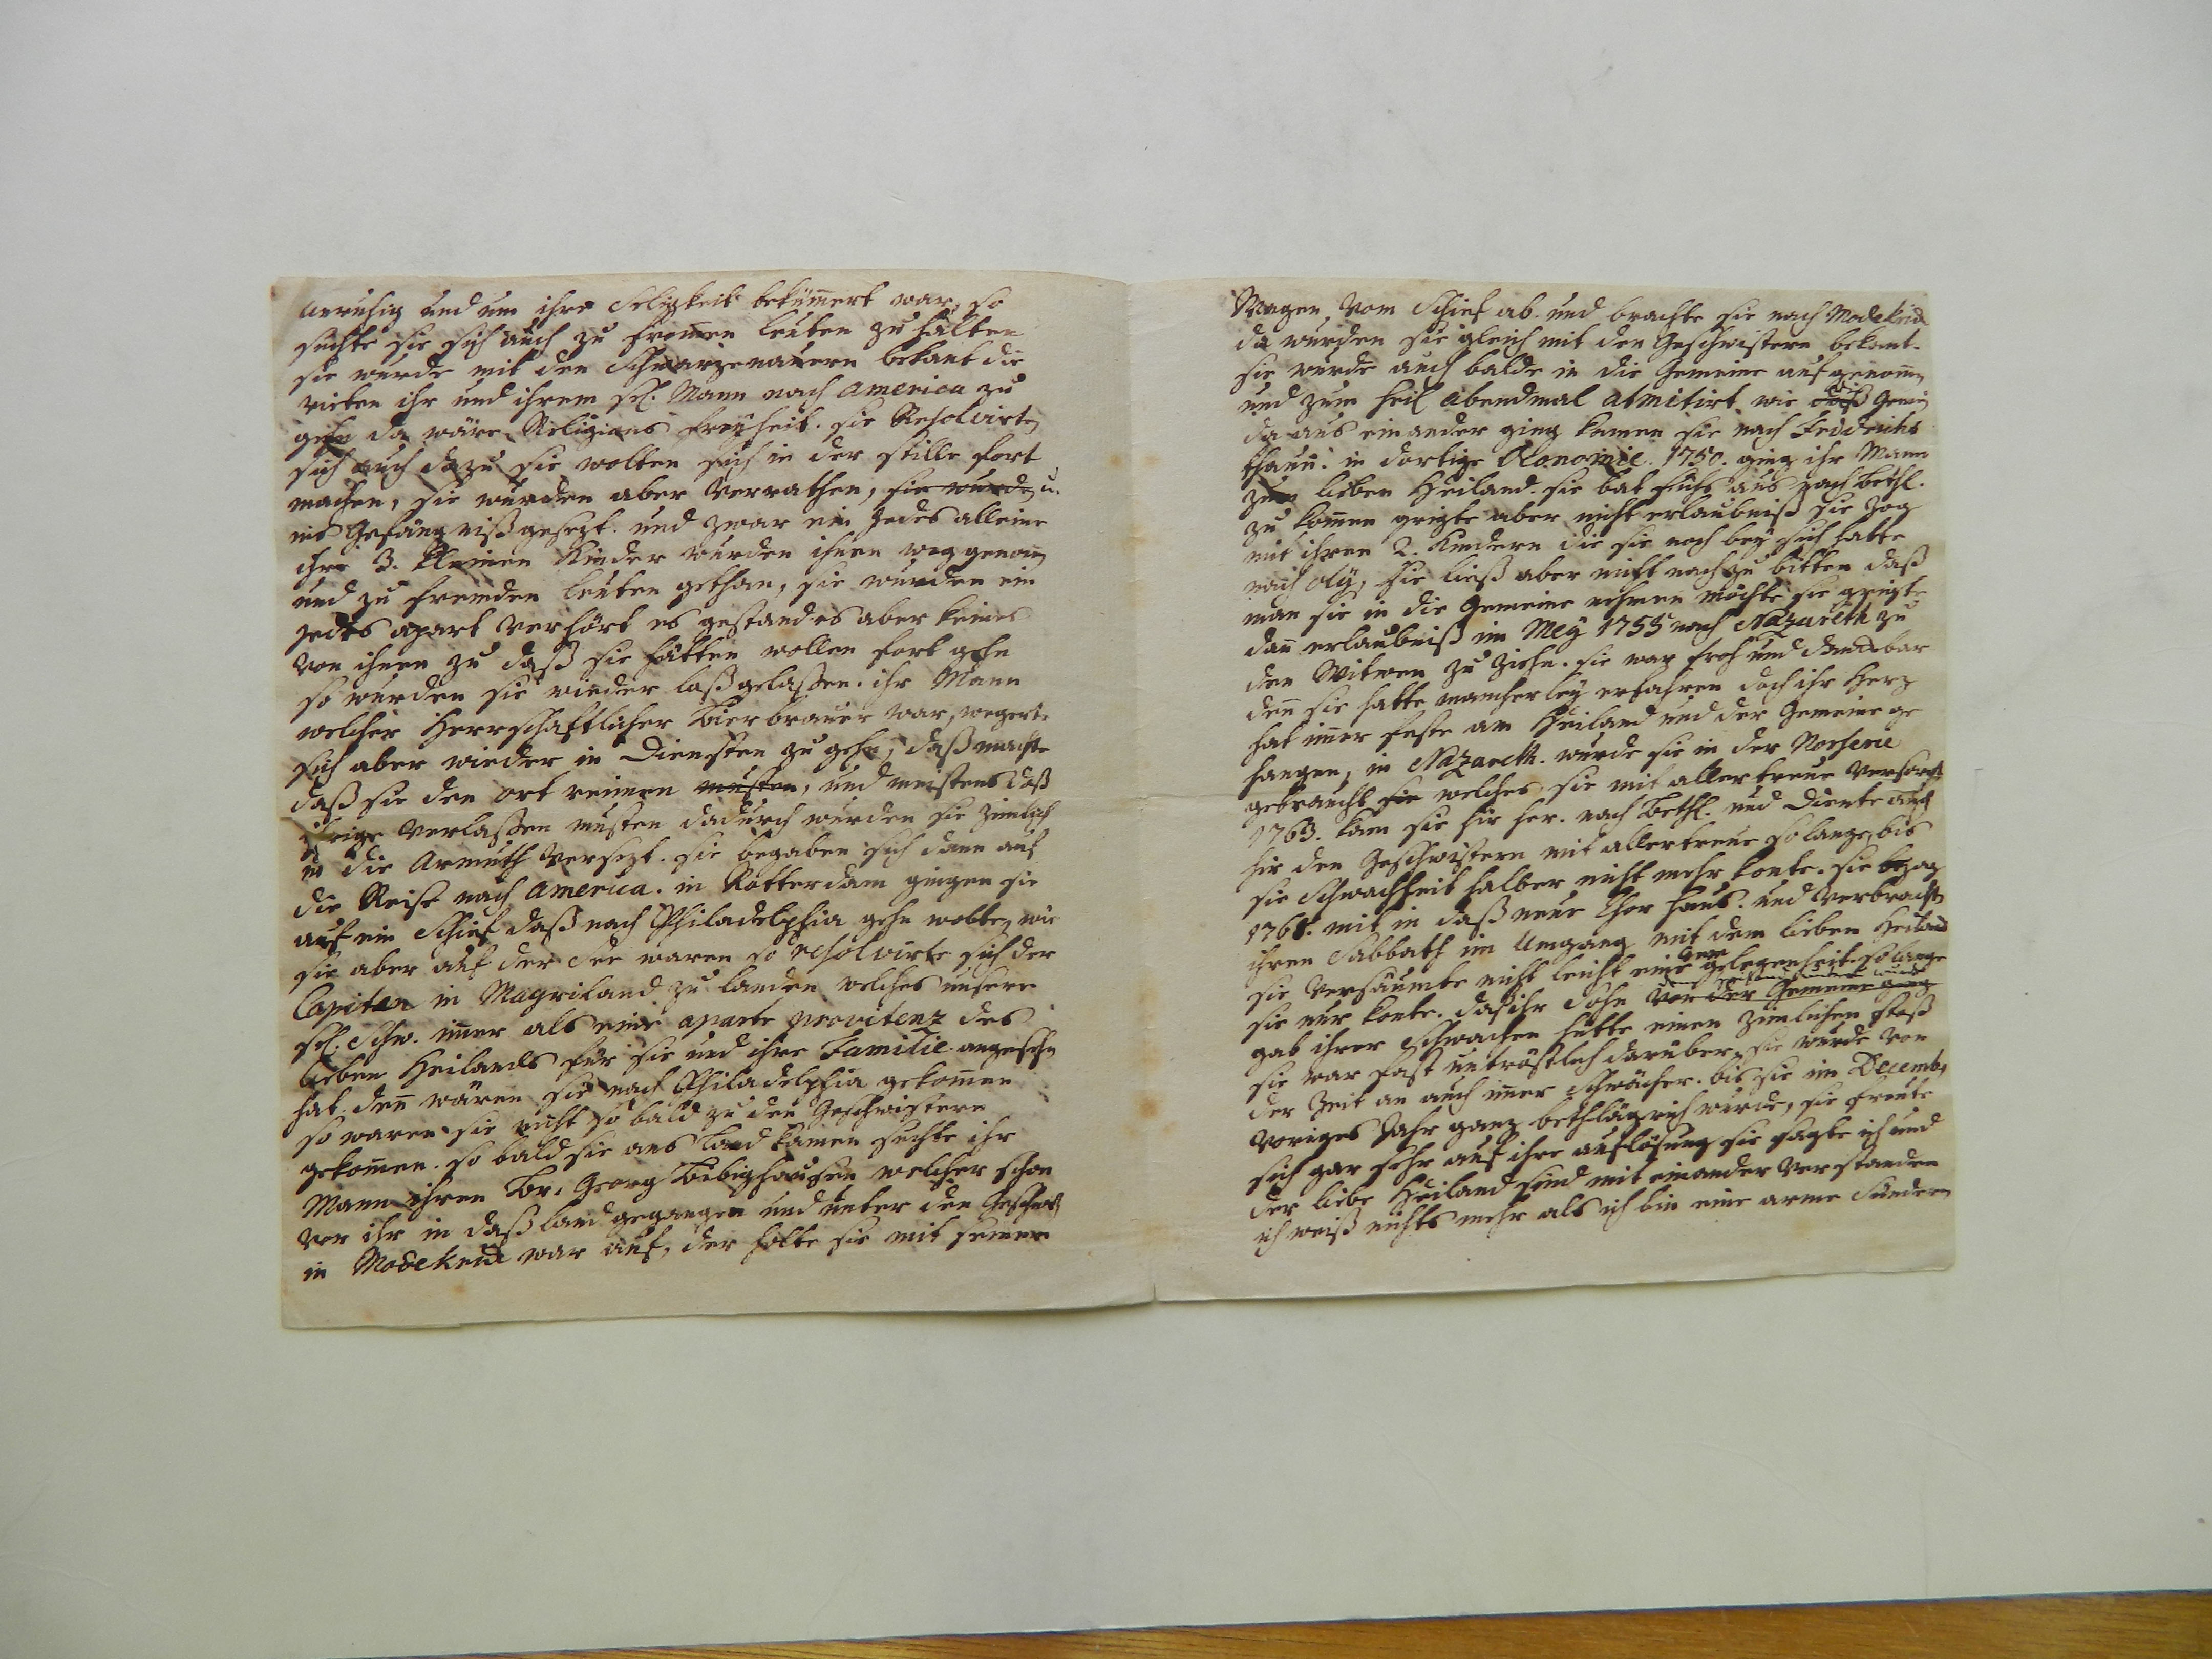 unruhig und um ihre Seligkeit bekümert war, so
suchte sie sich auch zu fromen leuten zu halten
sie wurde mit den Schwarzenauern bekant die
rieten ihr und ihrem sel. Mann nach America zu
gehn da wäre Religions freyheit. sie Resolvirten
sich auch dazu sie wolten sich in der stille fort
machen, sie wurden aber Verrathen, sie wurden u.
ins Gefängniß gesezt. und zwar ein Jedes alleine
ihre 3. kleinen Kinder wurden ihnen weg genomen
und zu fremden leuten gethan, sie wurden ein
Jedes apart Verhört es gestand es aber keines
Von ihnen zu daß sie hätten wollen fort gehn
so wurden sie wieder loß gelaßen. ihr Mann
welcher Herrschaftlicher Bierbrauer war, wegerte
sich aber wieder in Diensten zu gehn, daß machte
daß sie den ort reumen musten, und meistens daß
ihrige Verlaßen musten dadurch wurden sie zimlich
in die Armuth Versezt. sie begaben sich dann auf
die Reise nach America. in Rotterdam gingen sie
auf ein Schief daß nach Philadelphia gehn wolte, wie
sie aber auf der See waren so resolvirte sich der
Capiten in Magriland zu landen welches unsere
sel. Schw. imer als eine aparte provitenz des
lieben Heilands für sie und ihre Familie angesehn
hat. den wären sie nach Philadelphia gekomen
so waren sie nicht so bald zu den Geschwistern
gekomen. so bald sie ans Land kamen suchte ihr
Mann ihren Br. Georg Bebighausen welcher schon
Vor ihr in daß land gegangen und unter den Geschw
in Modekrick war auf, der holte sie mit seinem
Wagen, Vom Schief ab. und brachte sie nach Modekrick
da wurden sie gleich mit den Geschwistern bekant.
sie wurde auch balde in die Gemeine auf genomen
und zum heil Abendmal atmitirt wie daß die Gemein
da aus einander ging kamen sie nach Fridrichs
thaun. in dortige Okonomie. 1750. ging ihr Mann
zum lieben Heiland. sie bat sichs aus nach Bethl.
zu komen grigte aber nicht erlaubniß sie zog
mit ihren 2. Kindern die sie noch bey sich hatte
nach oly, sie ließ aber nicht nach zu bitten daß
man sie in die Gemeine nehmen möchte sie grigte
dan erlaubniß im Mey 1755 nach Nazareth zu
den Witwen zu ziehn. sie war froh und Danckbar
den sie hatte mancherley erfahren doch ihr Herz
hat imer feste am Heiland und der Gemeine ge
hangen, in Nazareth. wurde sie in der Norserie
gebraucht sie welches sie mit aller treue Versorgte
1763. kam sie hir her. nach Bethl. und Diente auch
hir den Geschwistern mit aller treue so lange, bis
sie Schwachheit halber nicht mehr konte. sie bezog
1768. mit in daß neue Chor haus. und Verbrachte
ihren Sabbath im Umgang mit dem lieben Heiland
sie Versäumte nicht leicht eine Gem gelegenheit. so lange
sie nur konte. daß ihr Sohn Vor der Gemeine ging
gab ihrer schwachen hütte einen zimlichen stoß
sie war fast untröstlich darüber, sie wurde Von
der Zeit an auch imer schwächer. bis sie im Decembr
Voriges Jahr ganz bethlägrich wurde, sie freute
sich gar sehr auf ihre auflösung sie sagte ich und
der liebe Heiland sind mit einander Verstanden
ich weiß nichts mehr als ich bin eine arme Sünderin